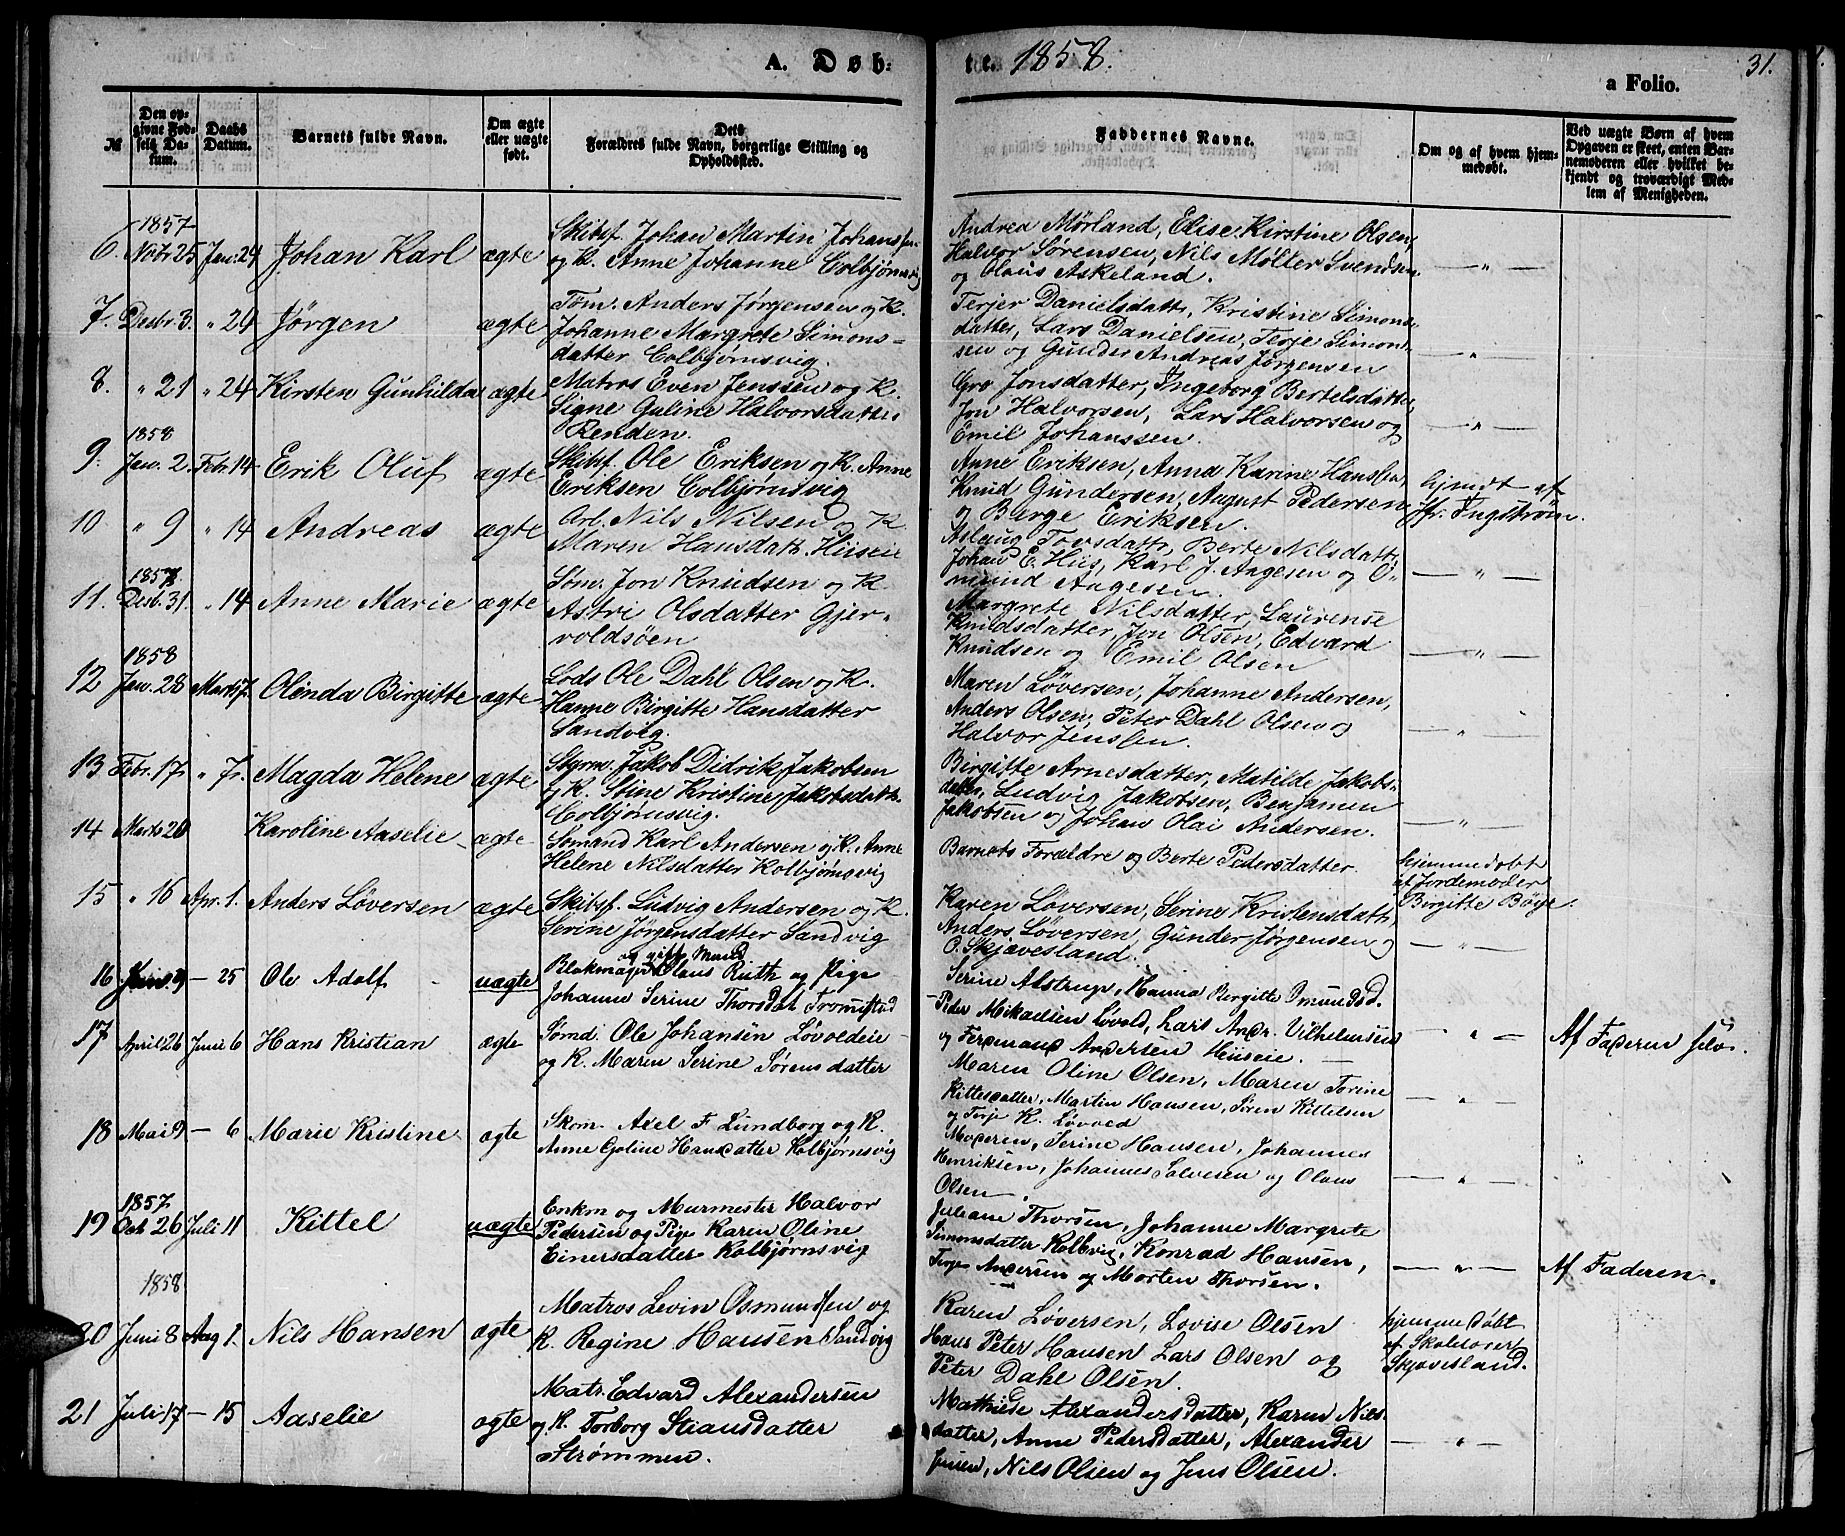 A. Døb-
te. 1858.
a Folio.
31.
№
Den op-
givne Fød-
sels Da-
tum.
Daabs
Datum.
Barnets fulde Navn.
Om ægte
eller uægte
født.
Dets
Forældres fulde Navn, borgerlige Stilling og
Opholdssted.
Faddernes Navne.
Om og af hvem hjem-
medøbt.
Ved uægte Børn af hvem
Opgaven er skeet, enten Bar-
nemoderen eller hvilket be-
kjendt og troværdigt Med-
lem af Menigheden.
1857
6. Nobr 25 Jan. 24 Johan Karl ægte
Skibsf. Johan Martin Johanssen
og K. Anne Johanne Colbjørnsvig
Andrea Mørland, Elise Kirstine Olsen,
Halvor Sørensen, Nils Møller Svendsen
og Olaus Askeland.
— " —
7. Desbr 3. " 24 Jörgen ægte
Tøm. Anders Jørgensen og K.
Johanne Margrete Simons-
datter Colbjørnsvig.
Terjer Danielsdattr, Kristine Simons-
datter, Lars Danielsen, Terje Simon-
sen og Gunder Andreas Jørgensen
"
8. " 21 " 24 Kirsten Gunhilda ægte
Matros Even Jenssen og K.
Signe Guline Halvorsdatter
Renden.
Gro Jonsdatter, Ingeborg Bertelsdatter,
Jon Halvorsen, Lars Halvorsen og
Emil Johanssen.
— " —
1858
9. Jan. 2. Febr. 14 Erik Oluf ægte
Skibsf. Ole Eriksen og K. Anne
Eriksen Colbjørnsvig
Anne Eriksen, Anna Karine Hanssen,
Knud Gundersen, August Pedersen
og Berge Eriksen.
hjmdt af
Jfr. Ingstrøm.
10 " 9 " 14 Andreas ægte
Arb. Nils Nilsen og K.
Maren Hansdatter Hiiseie
Aslaug Torsdattr, Berte Nilsdattr,
Johan E. Hiis, Karl J. Aagesen og O-
mund Aagesen.
— " —
1857
11. Desb. 31. " 14 Anne Marie ægte
Søm. Jon Knudsen og K.
Astri Olsdatter Gjer-
voldsöen
Margrete Nilsdatter, Laurense
Knudsdatter, Jon Olsen, Edvard
Knudsen og Emil Olsen
— " —
1858
12 Jan. 28 Marts 7. Olinda Birgitte ægte
Lods Ole Dahl Olsen og K.
Hanne Birgitte Hansdatter
Sandvig.
Maren Løversen, Johanne Andersen,
Anders Olsen, Peter Dahl Olsen og
Halvor Jenssen.
— " —
13 Febr. 17. " 7. Magda Helene ægte
Styrm. Jakob Didrik Jakobsen
og K. Stine Kristine Jakobsdattr.
Colbjørnsvig.
Birgitte Arnesdatter, Matilde Jakobs-
datter, Ludvig Jakobsen, Benjamen
Jakobsen og Johan Olai Andersen.
— " —
14 Marts 20 Karoline Aaselie ægte
Sømand Karl Andersen og K. Anne
Helene Nilsdatter Kolbjørnsvig
Barnets Forældre og Berte Pedersdatter.
hjemmedøbt
af Jordemoder
Birgitte Böye.
15 " 16 Apr. 1. Anders Løversen ægte
Skibsf. Ludvig Andersen og K.
Serine Jörgensdatter Sandvig
Karen Løversen, Serine Kristensdattr,
Anders Løversen, Gunder Jørgensen og
O. Skjævesland.
— " —
16 9 — 25 Ole Adolf uægte
og gift Mand
Blokmager Claus Ruth og Pige
Johanne Serine Thorsdat. Tromøstad
Serine Alstrup, Hanna Birgitte Omundsd.
Peder Mikaelsen Løvold, Lars Andr. Vilhelmsen
og Ferdinand Andersen Hiiseie.
— " —
Af Faderen selv.
17 April 26 Juni 6 Hans Kristian ægte
Sømd. Ole Johansen Løvoldeie
og K. Maren Serine Sørensdatter
Maren Oline Olsen, Maren Torine
Kittelsdatter, Martin Hansen, Søren Kittelsen
og Terje K. Løvold
— " —
18 Mai 9 — 6 Marie Kristine ægte
Skom. Axel F. Lundborg og K.
Anne Goline Hansdatter Kolbjørnsvig
Moderen, Serine Hansen, Johannes
Henriksen, Johannes Salvesen og Olaus
Olsen.
— " —
1857
19 Oct 26 Juli 11 Kittel uægte
Enkm. og Murmester Halvor
Pedersen og Pige Karen Oline
Einersdatter Kolbjørnsvig
Juliane Thorsen, Johanne Margrete
Simonsdatter Kolbvig, Konrad Hansen,
Terje Andersen og Morten Thorsen.
— " —
Af Faderen.
1858
20 Juni 8 Aug 1. Nils Hansen ægte
Matros Levin Osmundsen og
K. Regine Hansen Sandvig
Karen Løversen, Lovise Olsen
Hans Peter Hansen Lars Olsen og
Peter Dahl Olsen.
hjemmedøbt
af Skolelærer
Skjævesland.
21 Juli 17 — 15 Aaselie ægte
Matr. Edvard Alexandersen
og K. Torborg Stiansdatter
Strømmen.
Mathilde Alexandersdatter, Karen Nils-
datter, Anne Pedersdatter, Alexander
Jensen, Nils Olsen og Jens Olsen.
— " —